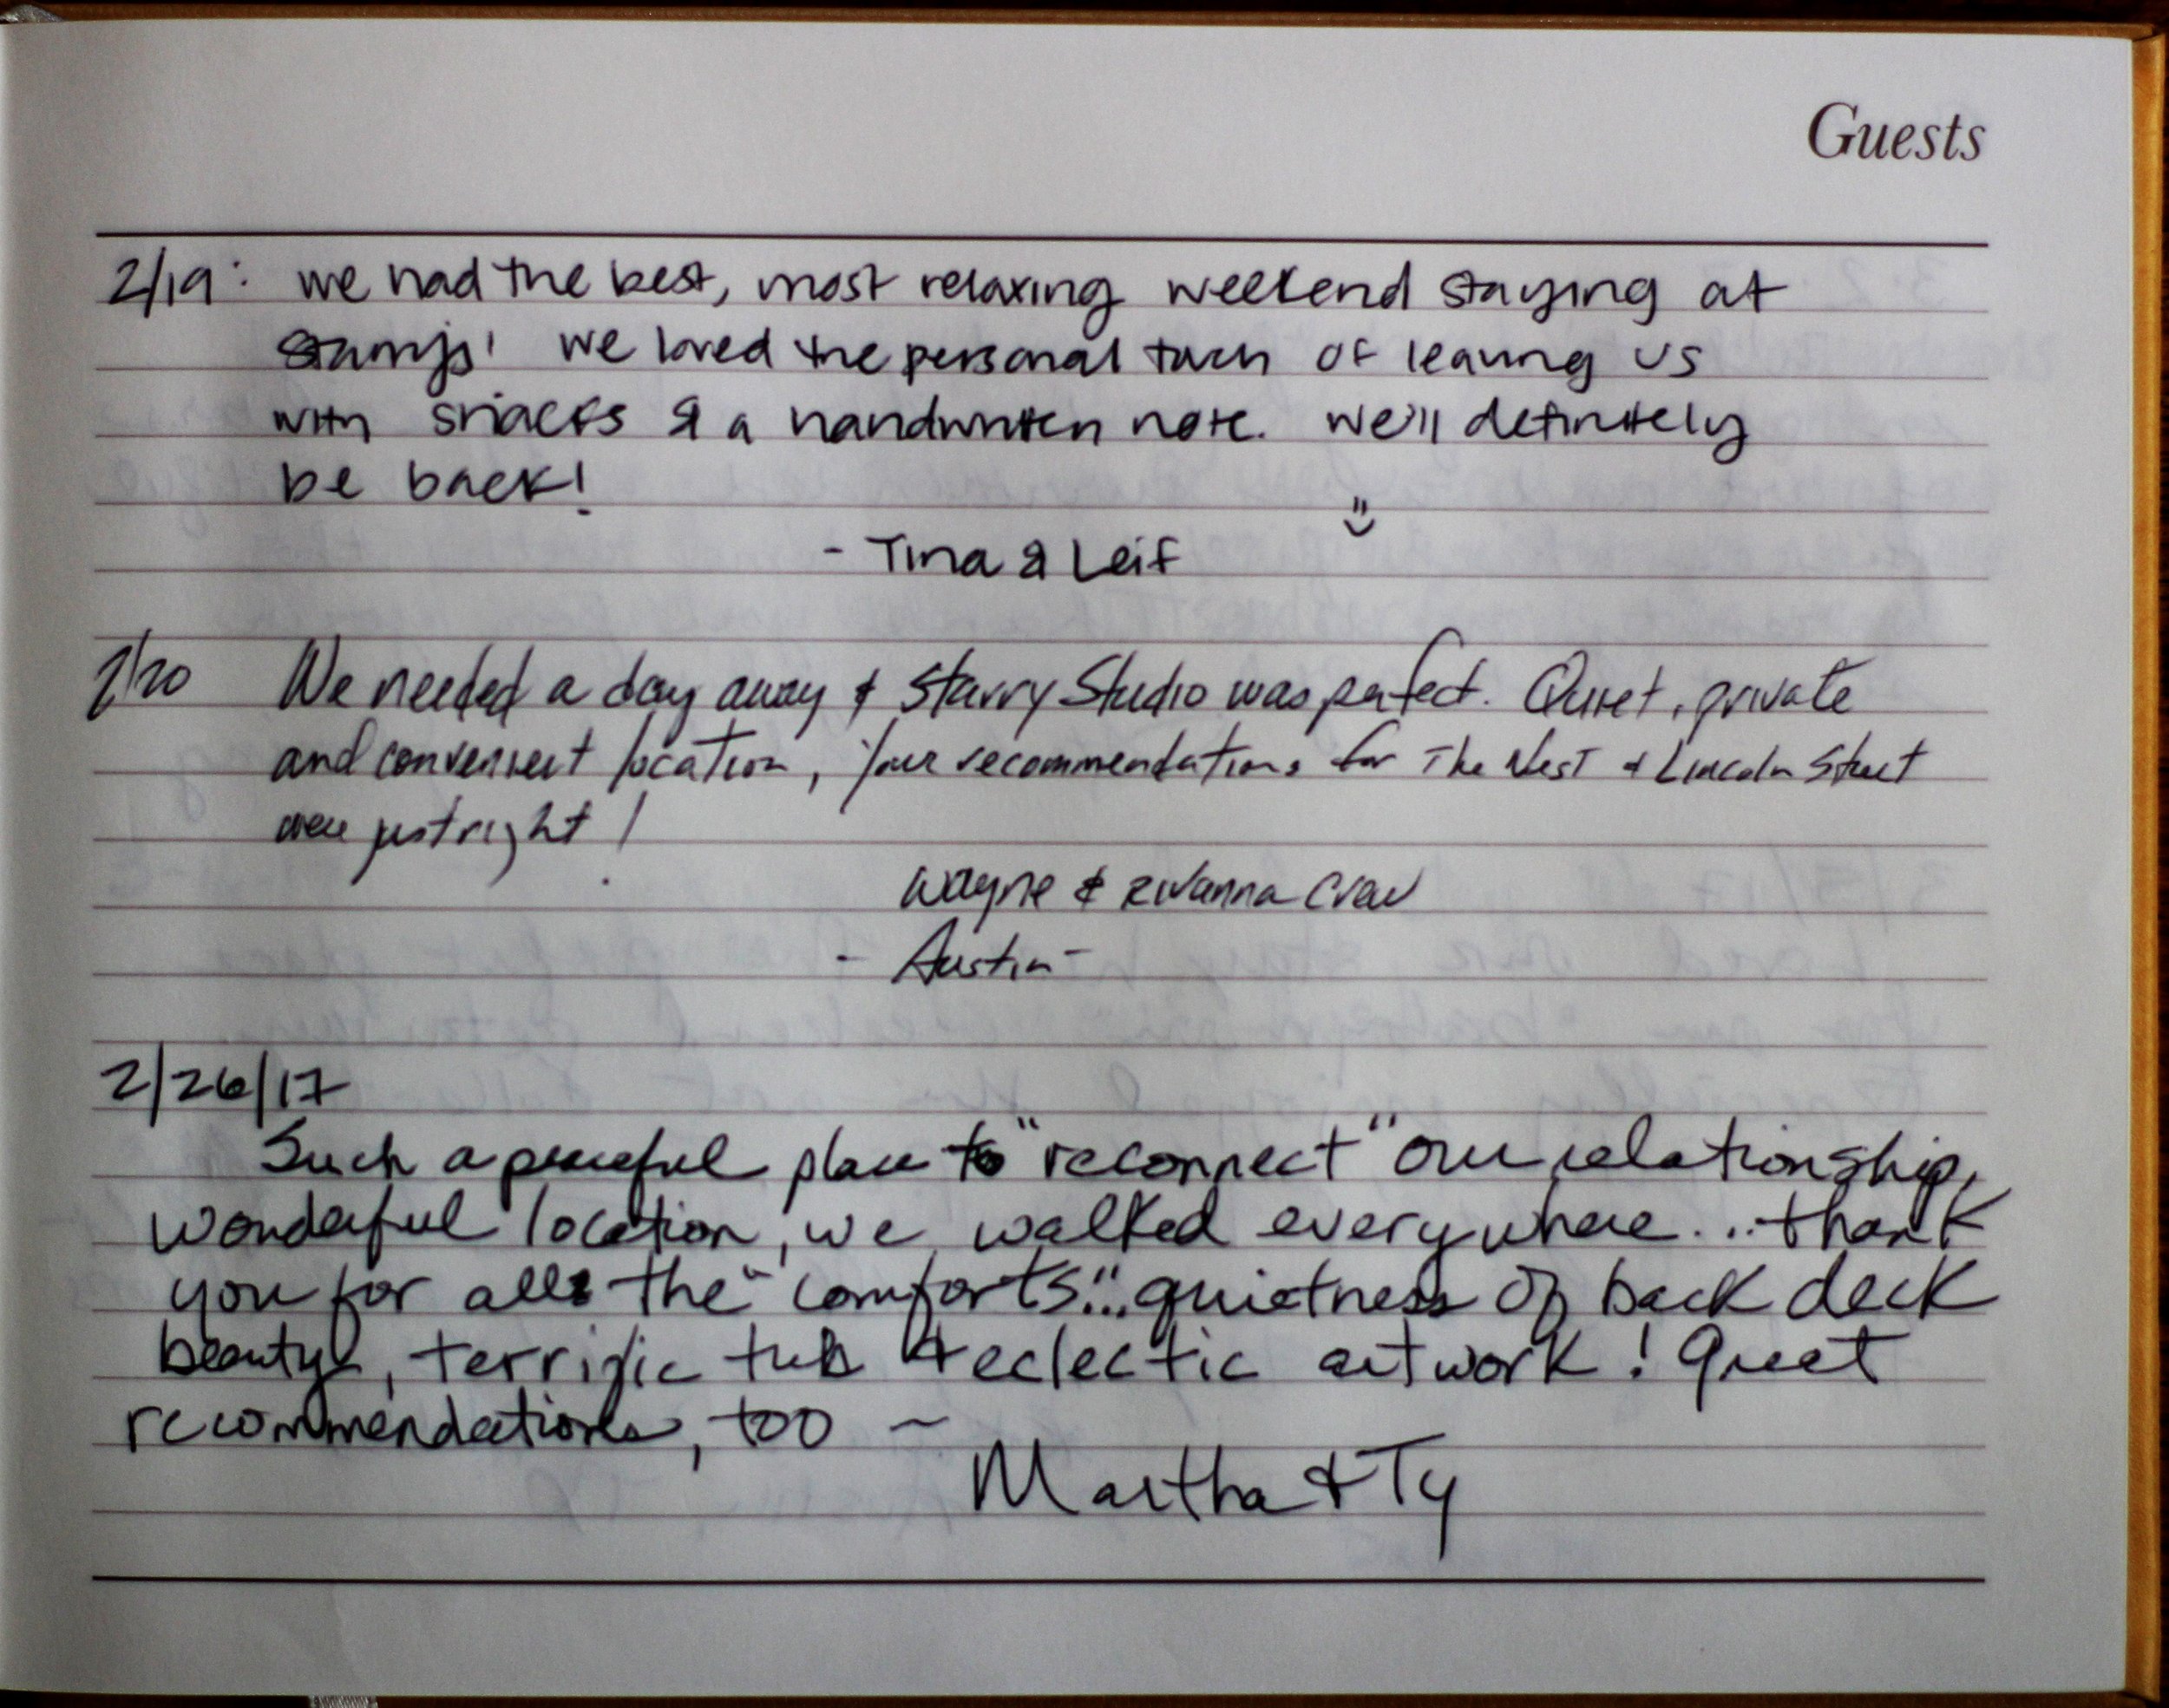 Guests
2/19: we had the best, most relaxing weekend staying at
we loved the personal touch of leaving us
with snacks & a handwritten note. we'll definitely
be back!
- Tina & Leif
2/20 We needed a day away & Starry Studio was perfect. Quiet, private
and convenient location, your recommendations for The Nest & Lincoln Street
were just right!
Wayne & Rivanna Craw
- Austin -
2/26/17
Such a peaceful place to "reconnect" our relationship,
wonderful location, we walked everywhere... thank
you for all the "comforts"... quietness of back deck
beauty, terrific tub & eclectic artwork! Great
recommendations, too ~
Martha & Ty